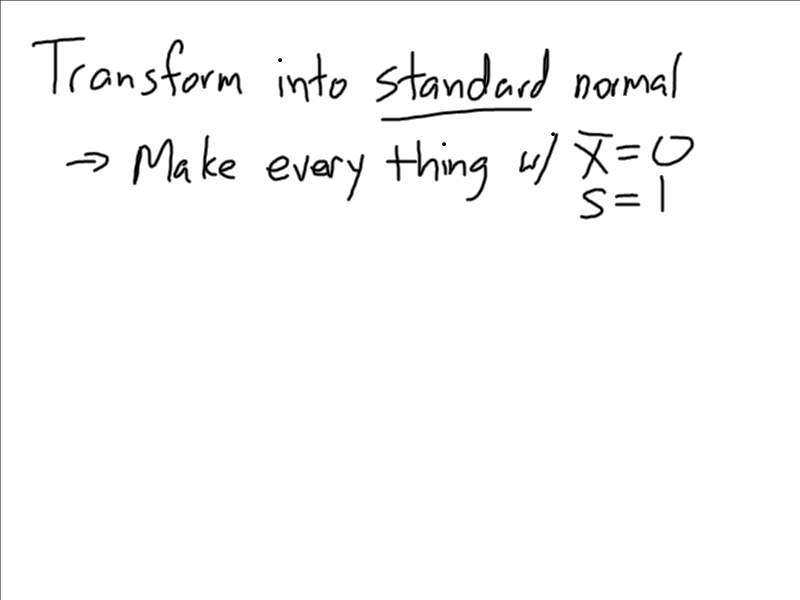 Transform into standard normal
→ Make every thing w/ x̄ = 0
s = 1